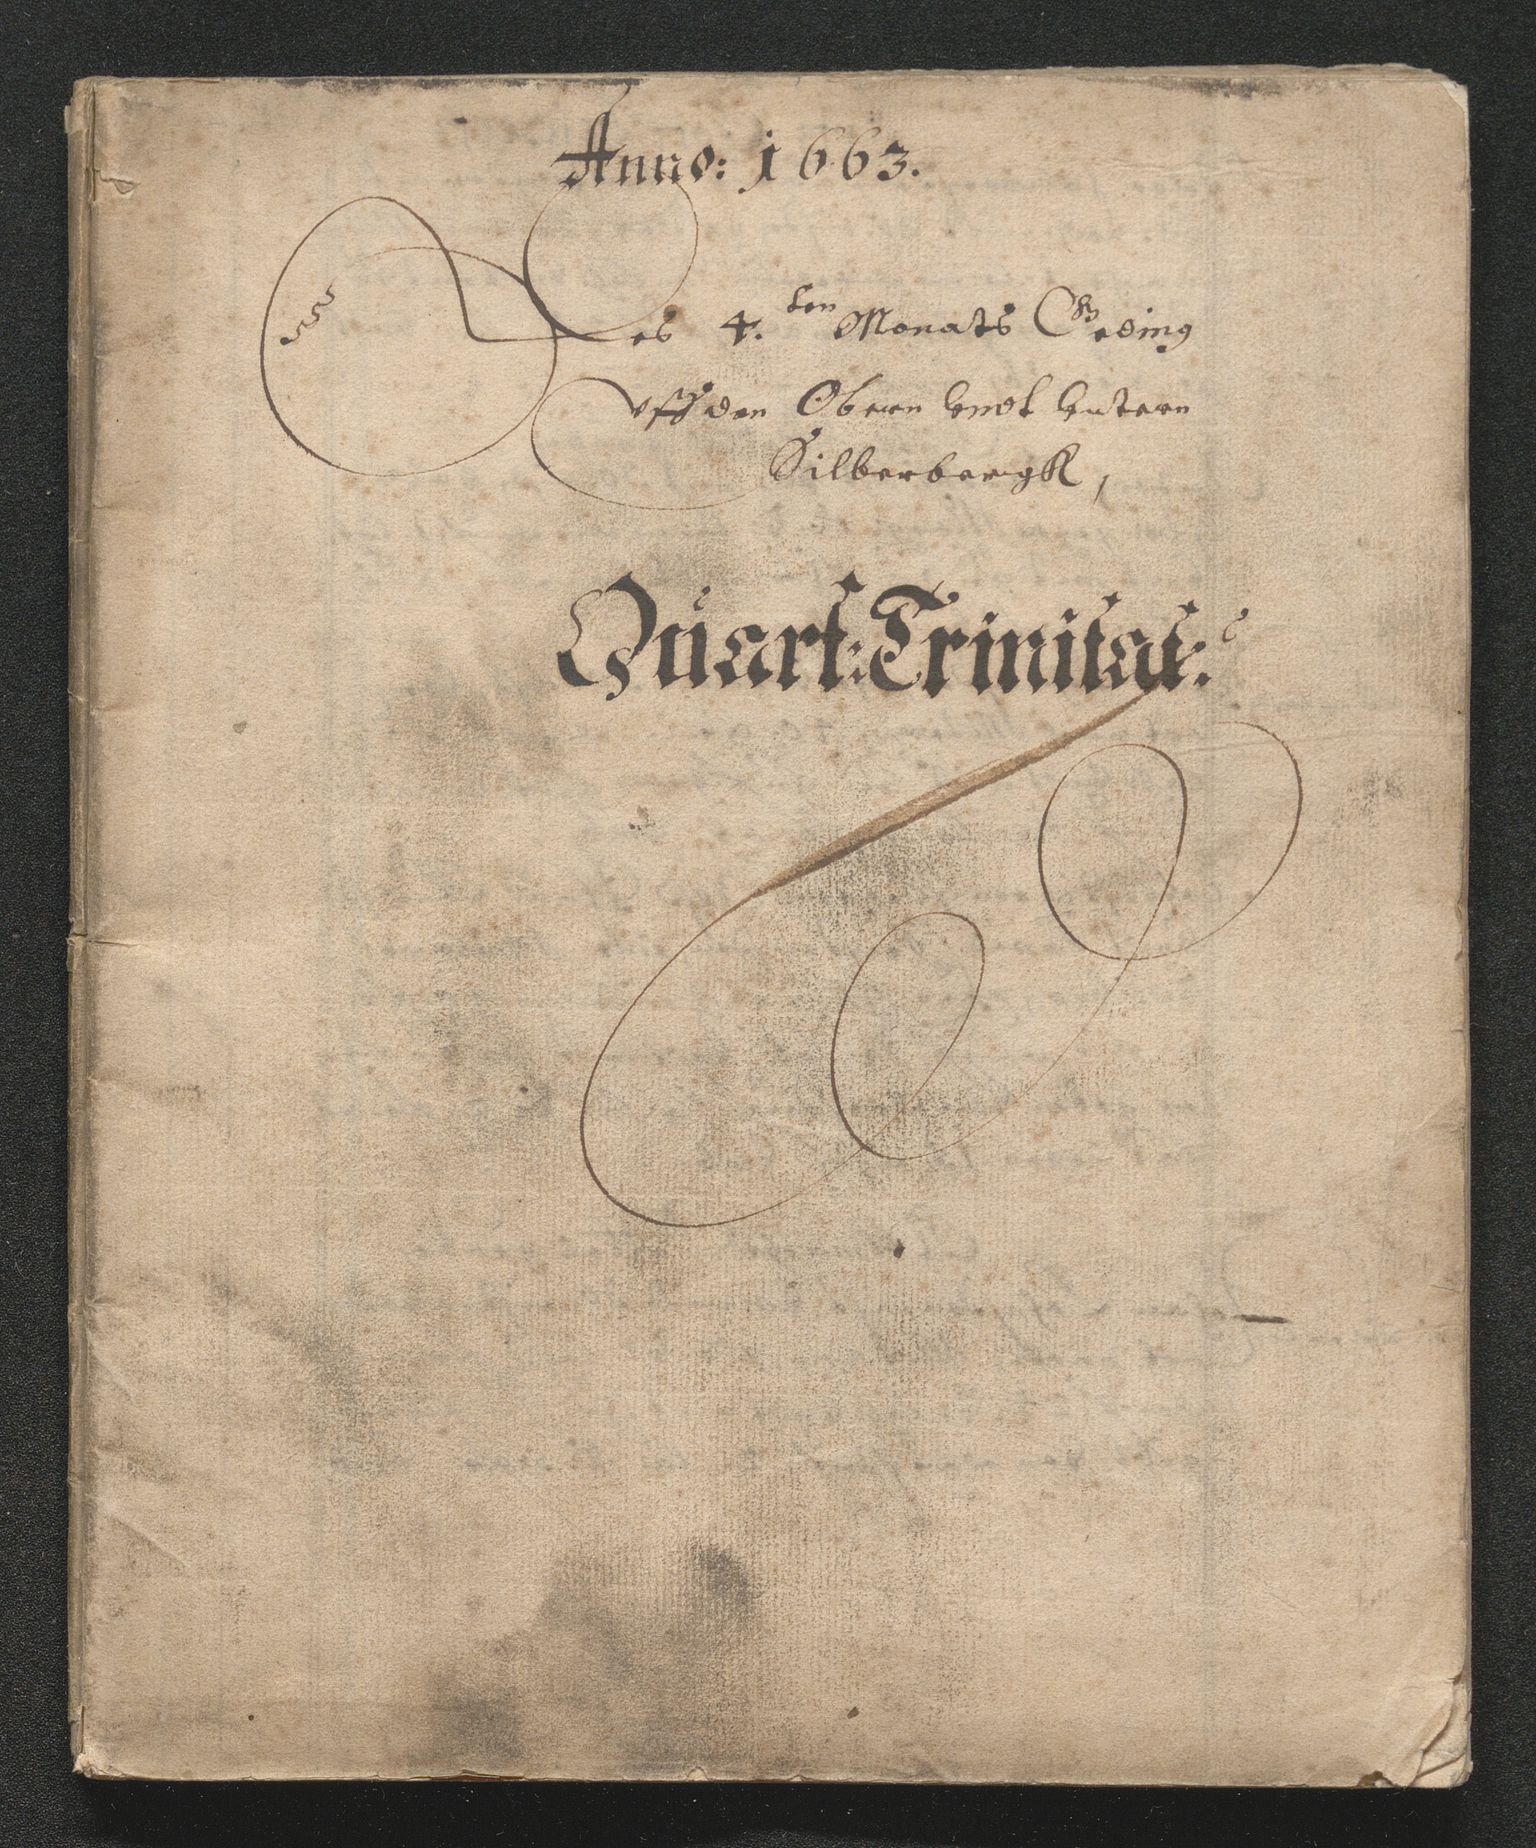 Anno: 1663.
Des 4.ten Monats Geding
vff den Obern vndt vntern
Silberbergk,
Quart: Trinitat: